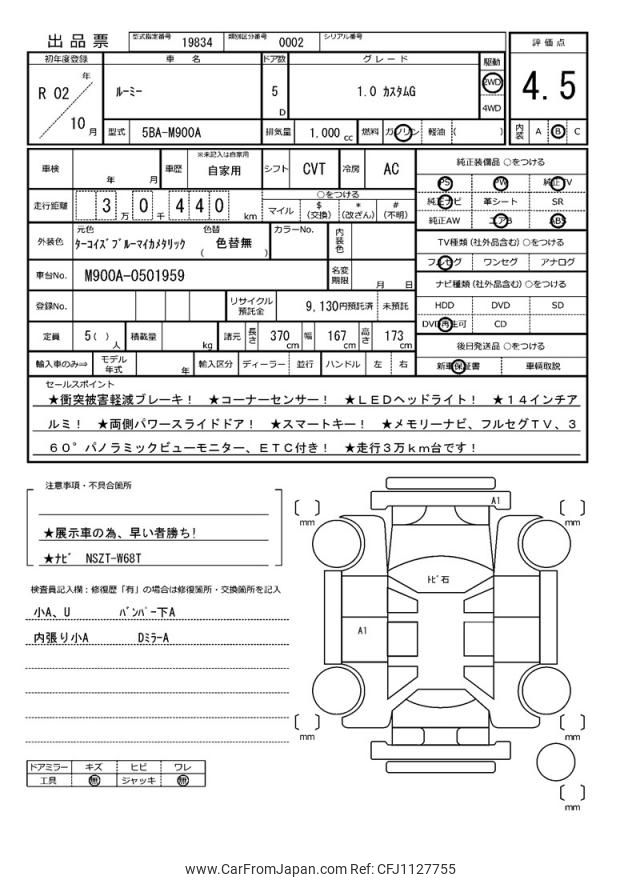 出品票
型式指定番号 19834 類別区分番号 0002 シリアル番号
評価点
4.5
内装 A B C
初年度登録 車名 ドア数 グレード 駆動
R 02 年 10 月
ルーミー 5 D 1.0 カスタムG 2WD 4WD
型式 5BA-M900A 排気量 1.000 cc 燃料 ガソリン 軽油 ( )
車検 年 月 車歴 ※未記入は自家用 自家用 シフト CVT 冷房 AC
走行距離 3 万 0 千 4 4 0 km
○をつける
マイル $ (交換) * (改ざん) # (不明)
外装色 元色 ターコイズブルーマイカメタリック 色替 ( 色替無 ) カラーNo. 内装色
車台No. M900A-0501959 名変期限 月 日
登録No. リサイクル預託金 9,130円預託済 未預託
定員 5( ) 人 積載量 kg 諸元 長さ 370 cm 幅 167 cm 高さ 173 cm
輸入車のみ⇒ モデル年式 年 輸入区分 ディーラー 並行 ハンドル 左 右
純正装備品 ○をつける
PS PW 純正TV
純正ナビ 革シート SR
純正AW エアB ABS
TV種類(社外品含む) ○をつける
フルセグ ワンセグ アナログ
ナビ種類(社外品含む) ○をつける
HDD DVD SD
DVD再生可 CD
後日発送品 ○をつける
新車保証書 車輌取説
セールスポイント
★衝突被害軽減ブレーキ! ★コーナーセンサー! ★LEDヘッドライト! ★14インチア
ルミ! ★両側パワースライドドア! ★スマートキー! ★メモリーナビ、フルセグTV、3
60°パノラミックビューモニター、ETC付き! ★走行3万km台です!
注意事項・不具合箇所
★展示車の為、早い者勝ち!
★ナビ NSZT-W68T
検査員記入欄：修復歴「有」の場合は修復箇所・交換箇所を記入
小A、U バンパー下A
内張り小A DミラーA
ドアミラー キズ ヒビ ワレ
工具 無 ジャッキ 無
A1
トビ石
A1
mm
mm
mm
mm
mm
www.CarFromJapan.com Ref: CFJ1127755